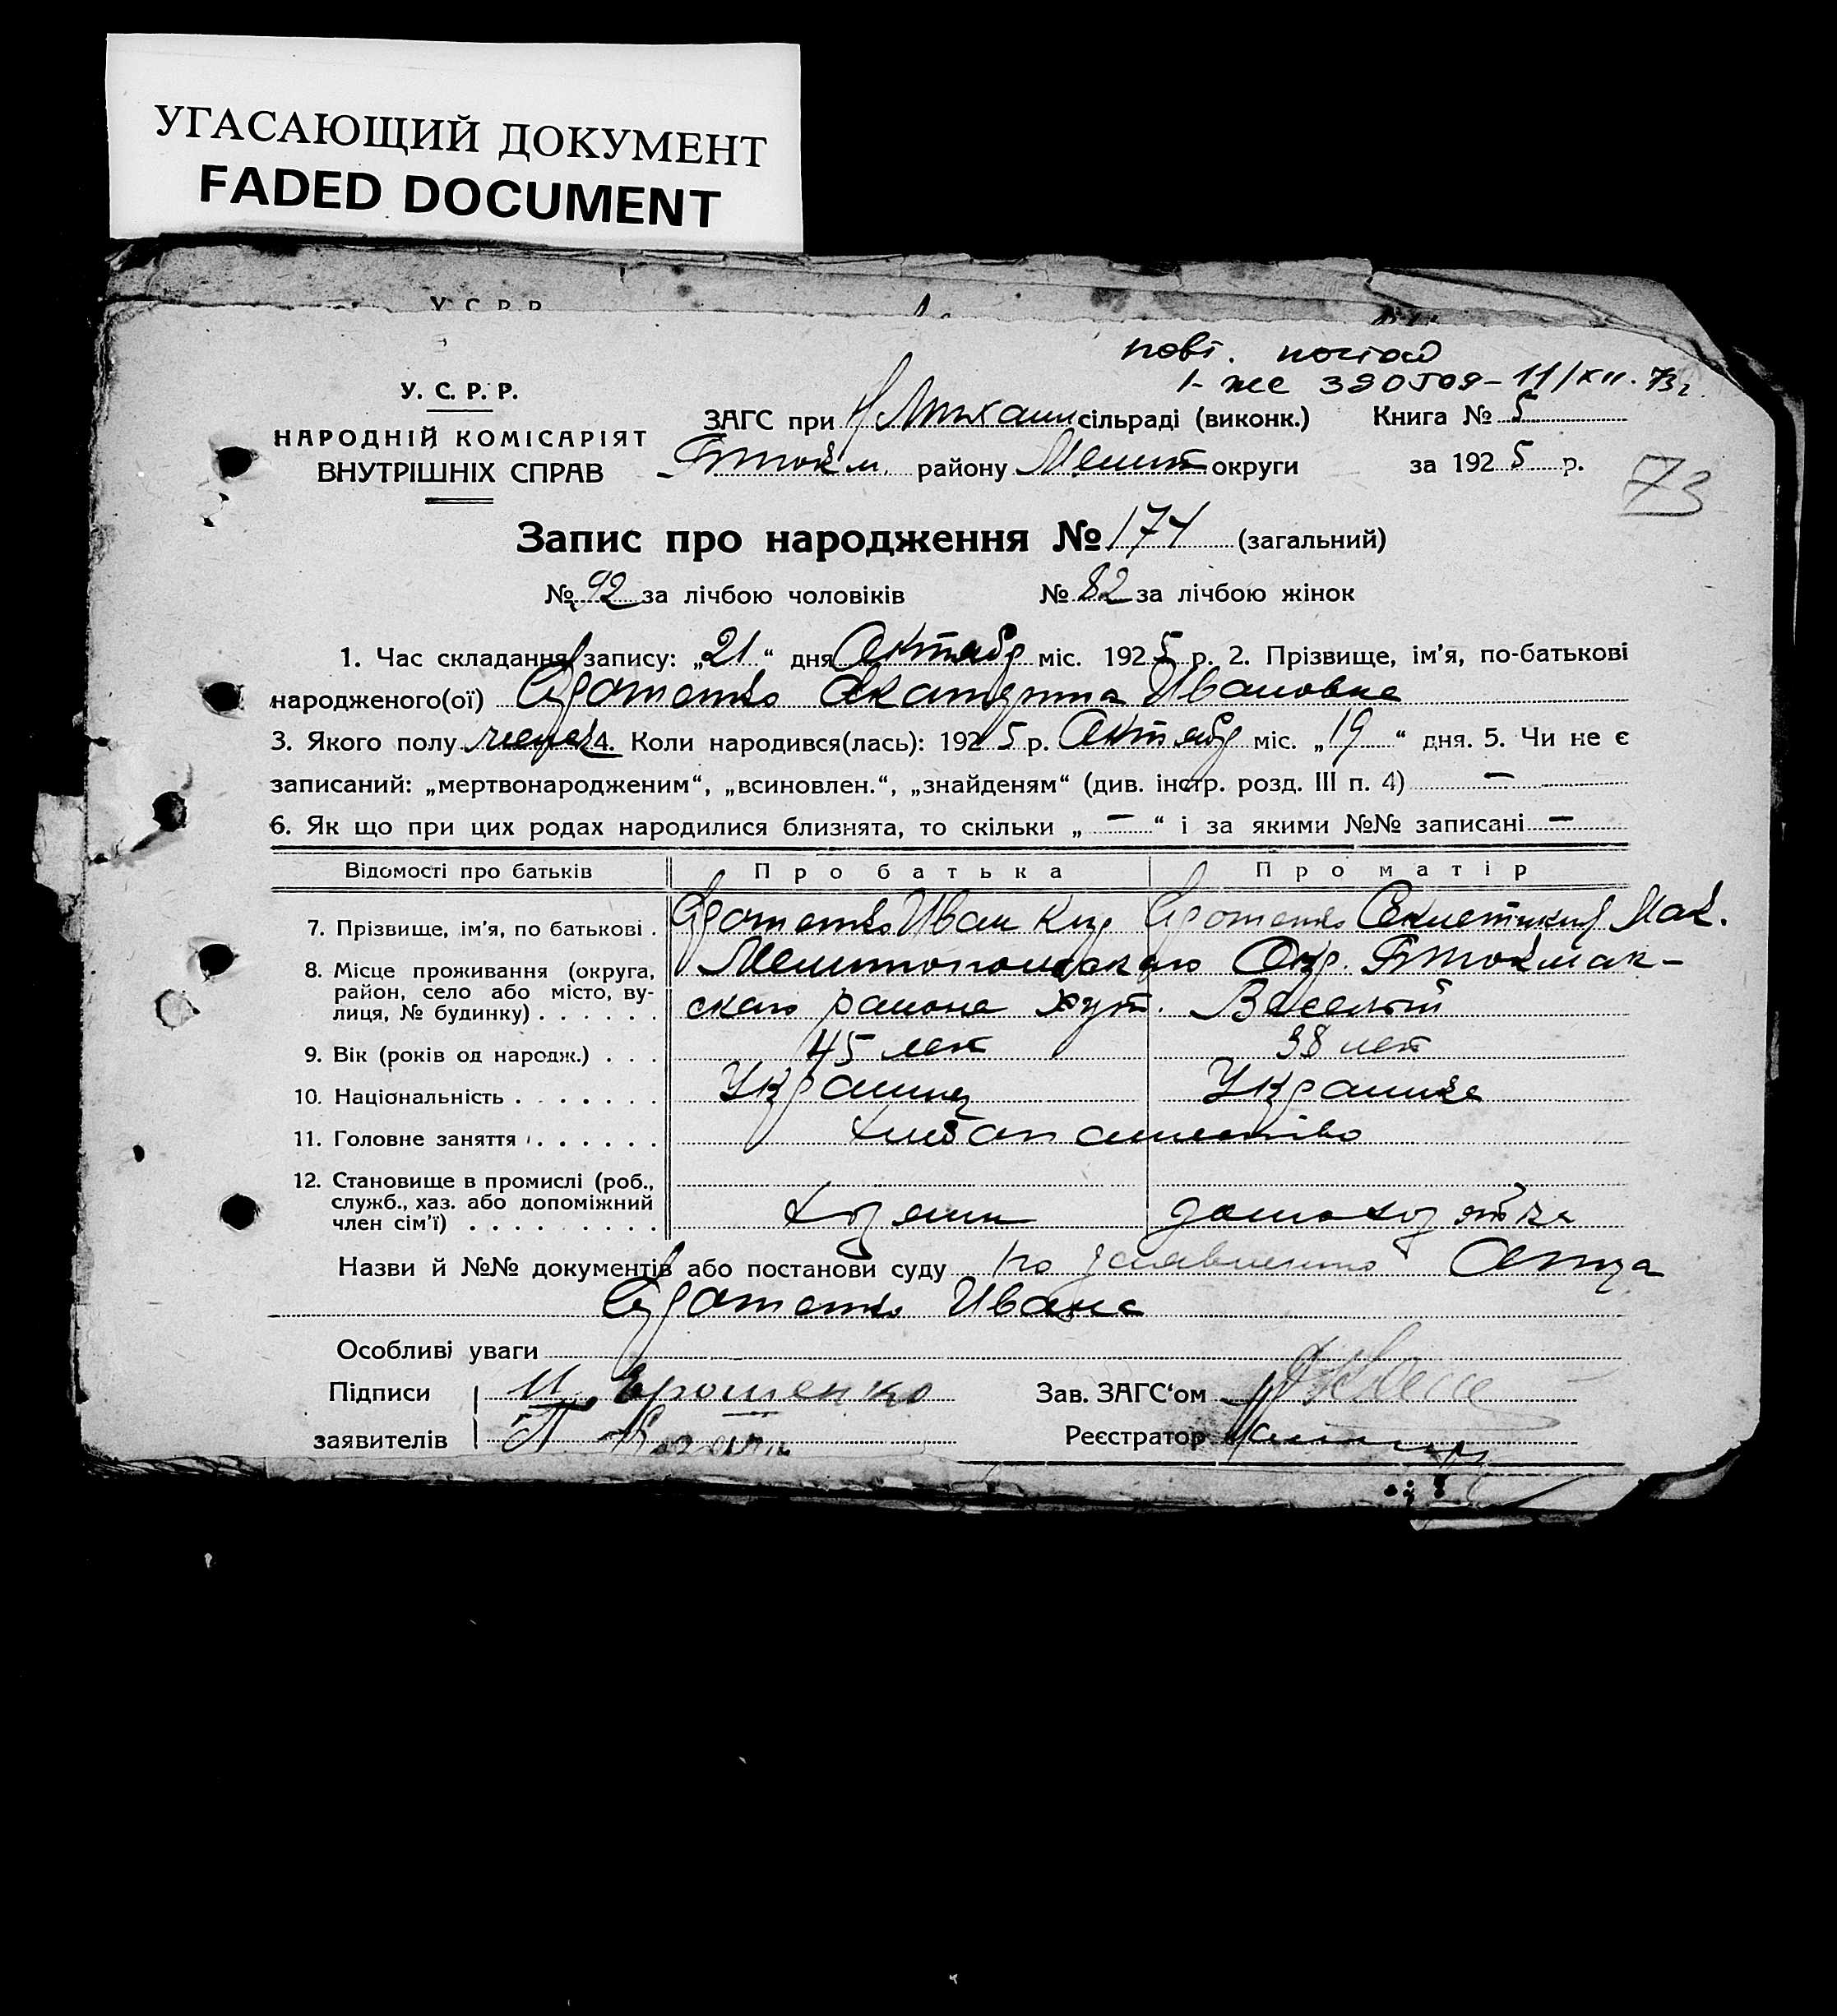 УГАСАЮЩИЙ ДОКУМЕНТ
FADED DOCUMENT
У. С. Р. Р.
1-же 11/XII. 73г.
У. С. Р. Р.
НАРОДНІЙ КОМІСАРІЯТ
ВНУТРІШНІХ СПРАВ
ЗАГС при сільраді (виконк.) Книга № 5
району Мелит округи за 1925 р.
73
Запис про народження № 174 (загальний)
№ 92 за лічбою чоловіків № 82 за лічбою жінок
1. Час складання запису: „21“ дня Октябр міс. 1925 р. 2. Прізвище, ім'я, по-батькові
народженого(ої) Екатерина Ивановна
3. Якого полу 4. Коли народився(лась): 1925 р. Октябр міс. „19“ дня. 5. Чи не є
записаний: „мертвонародженим“, „всиновлен.“, „знайденям“ (див. інстр. розд. III п. 4) —
6. Як що при цих родах народилися близнята, то скільки „—“ і за якими №№ записані —
Відомості про батьків Про батька Про матір
7. Прізвище, ім'я, по батькові . Иван
8. Місце проживання (округа, район, село або місто, вулиця, № будинку) . . . . . . Мелитопольского Окр. Б токмак-
ского района хут. Веселый
9. Вік (років од народж.) . . . 45 лет 38 лет
10. Національність . . . . . . . Украинец Украинка
11. Головне заняття . . . . . . Хлебопашество
12. Становище в промислі (роб., служб., хаз. або допоміжний член сім'ї) . . . . . . . . . Хозяин домохозяйка
Назви й №№ документів або постанови суду по заявлению Отца
Ивана
Особливі уваги
Підписи И. Ерошенко Зав. ЗАГС'ом
заявителів П. Реєстратор